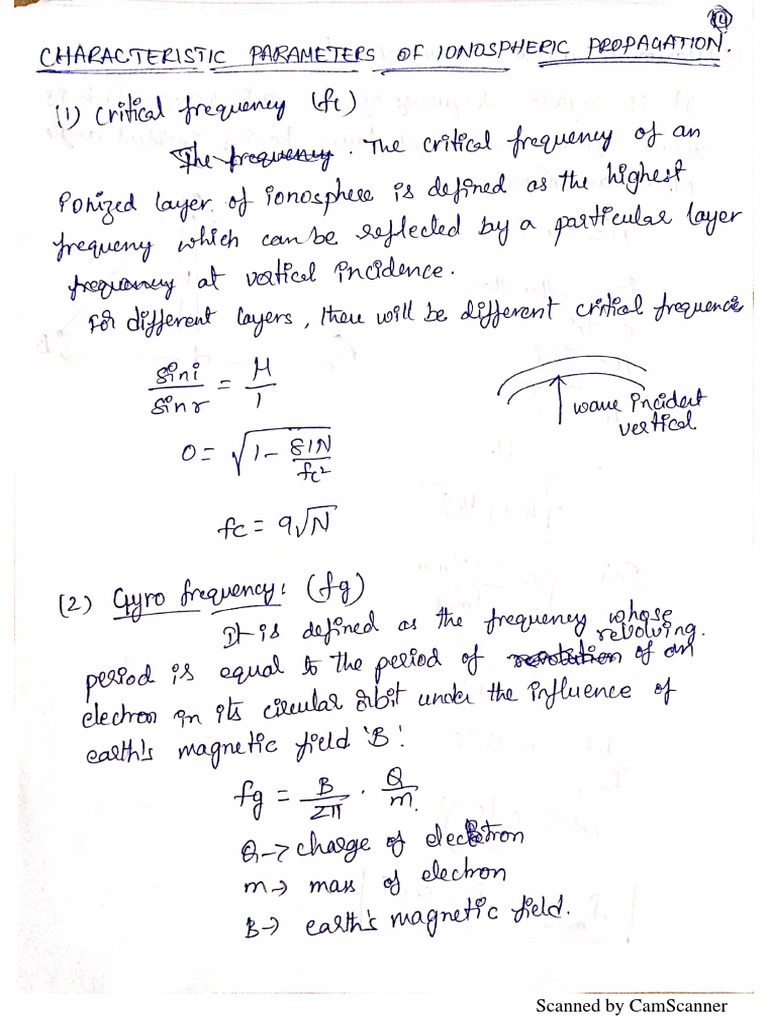 14
CHARACTERISTIC PARAMETERS OF IONOSPHERIC PROPAGATION.
(1) Critical frequency (fc)
The frequency. The critical frequency of an
ionized layer of ionosphere is defined as the highest
frequeny which can be reflected by a particular layer
frequency at vertical incidence.
For different layers, there will be different critical frequencie
sini / sinr = μ / 1
wave incident
vertical
0 = √(1 - 81N / fc²)
fc = 9√N
(2) Gyro frequency: (fg)
It is defined as the frequency whose
revolving.
period is equal to the period of revolution of an
electron in its circular orbit under the influence of
earth's magnetic field 'B'.
fg = B / 2π . Q / m.
Q → charge of electron
m → mass of electron
B → earth's magnetic field.
Scanned by CamScanner